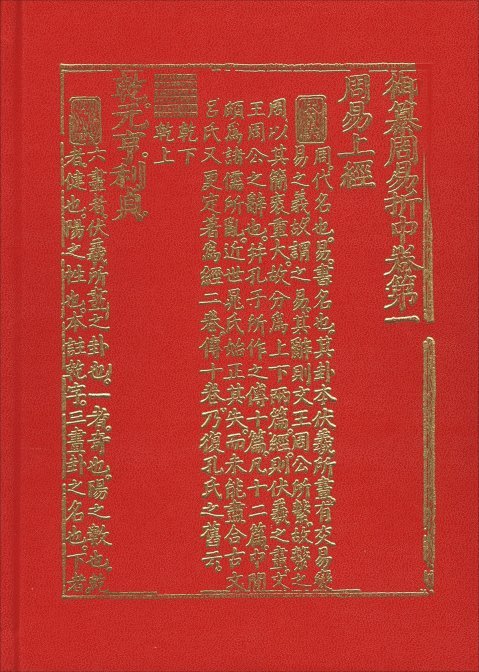 御纂周易折中卷第一
周易上經
周代名也。易書名也。其卦本伏羲所畫。有交易變
易之義。故謂之易。其辭則文王周公所繫。故繫之
周。以其簡袠重大。故分爲上下兩篇。經則伏羲之畫。文
王周公之辭也。并孔子所作之傳十篇。凡十二篇。中間
頗爲諸儒所亂。近世晁氏始正其失。而未能盡合古文。
呂氏又更定著爲經二卷。傳十卷。乃復孔氏之舊云。
乾下
乾上
乾。元亨。利貞。
六畫者。伏羲所畫之卦也。一者。奇也。陽之數也。乾
者。健也。陽之性也。本註乾字。三畫卦之名也。下者